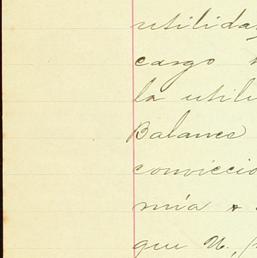 utilida
cargo
la utili
Balance
conviccio
mía
que U.